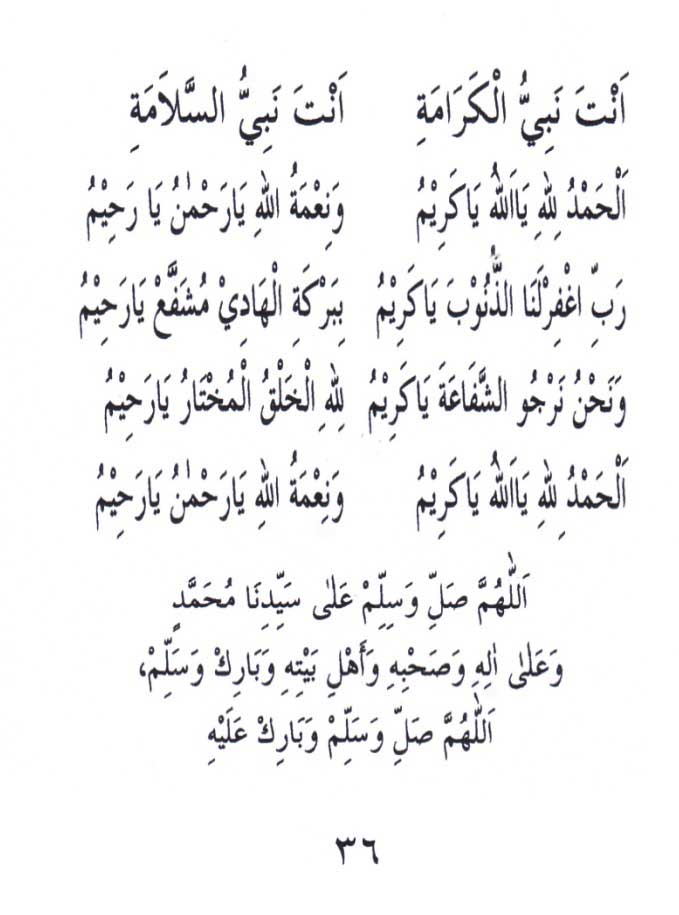 اَنْتَ نَبِيُّ الْكَرَامَةِ اَنْتَ نَبِيُّ السَّلَامَةِ
اَلْحَمْدُ لِلّٰهِ يَااَللّٰهُ يَاكَرِيْمُ وَنِعْمَةُ اللّٰهِ يَارَحْمٰنُ يَا رَحِيْمُ
رَبِّ اغْفِرْلَنَا الذُّنُوْبَ يَاكَرِيْمُ بِبَرْكَةِ الْهَادِيْ مُشَفَّعْ يَارَحِيْمُ
وَنَحْنُ نَرْجُو الشَّفَاعَةَ يَاكَرِيْمُ لِلّٰهِ الْخَلْقُ الْمُخْتَارُ يَارَحِيْمُ
اَلْحَمْدُ لِلّٰهِ يَااَللّٰهُ يَاكَرِيْمُ وَنِعْمَةُ اللّٰهِ يَارَحْمٰنُ يَارَحِيْمُ
اَللّٰهُمَّ صَلِّ وَسِلِّمْ عَلٰى سَيِّدِنَا مُحَمَّدٍ
وَعَلٰى اٰلِهِ وَصَحْبِهِ وَأَهْلِ بَيْتِهِ وَبَارِكْ وَسَلِّمْ،
اَللّٰهُمَّ صَلِّ وَسَلِّمْ وَبَارِكْ عَلَيْهِ
٣٦